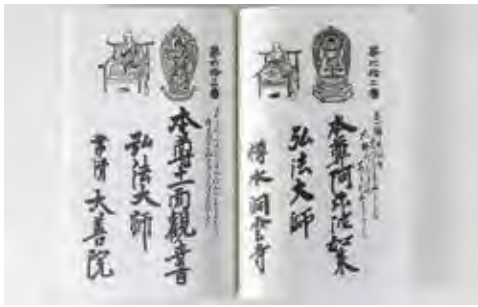 第六拾二番
本尊阿弥陀如来
弘法大師
樽水 洞雲寺
第六拾三番
本尊十一面観世音
弘法大師
常滑 大善院